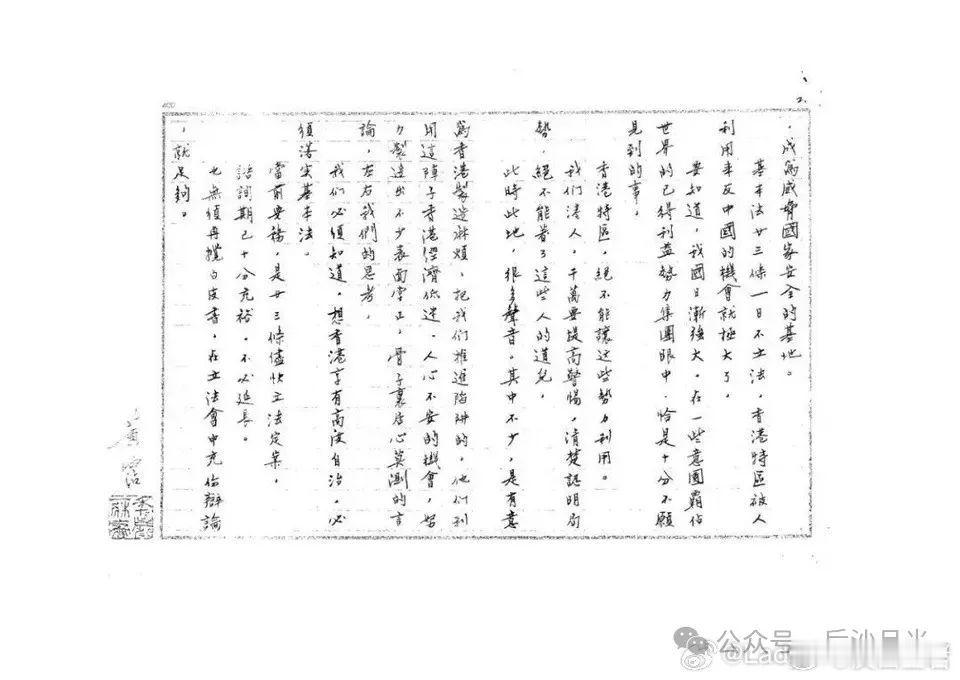 2.
，成為威脅國家安全的基地。
基本法廿三條一日不立法，香港特區被人
利用來反中國的機會就極大了，
要知道，我國日漸強大。在一些意圖霸佔
世界的已得利益勢力集團眼中，恰是十分不願
見到的事。
香港特區，絕不能讓這些勢力利用。
我們港人，千萬要提高警惕，清楚認明局
勢，絕不能着了這些人的道兒，
此時此地，很多聲音。其中不少，是有意
為香港製造麻煩，把我們推進陷阱的，他們利
用這陣子香港經濟低迷、人心不安的機會，努
力製造出不少表面堂正，骨子裏居心莫測的言
論，左右我們的思考，
我們必須知道，想香港享有高度自治，必
須落實基本法。
當前要務，是廿三條儘快立法定案，
諮詢期已十分充裕。不必延長。
也無須再攬白皮書，在立法會中充份辯論
，就足夠。
黃霑
公众号